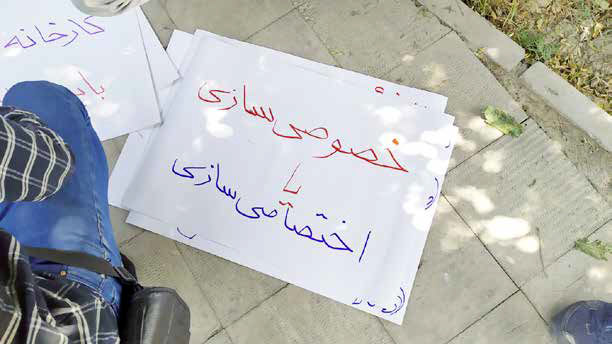 کارخانه
خصوصی سازی
یا
اختصاصی سازی